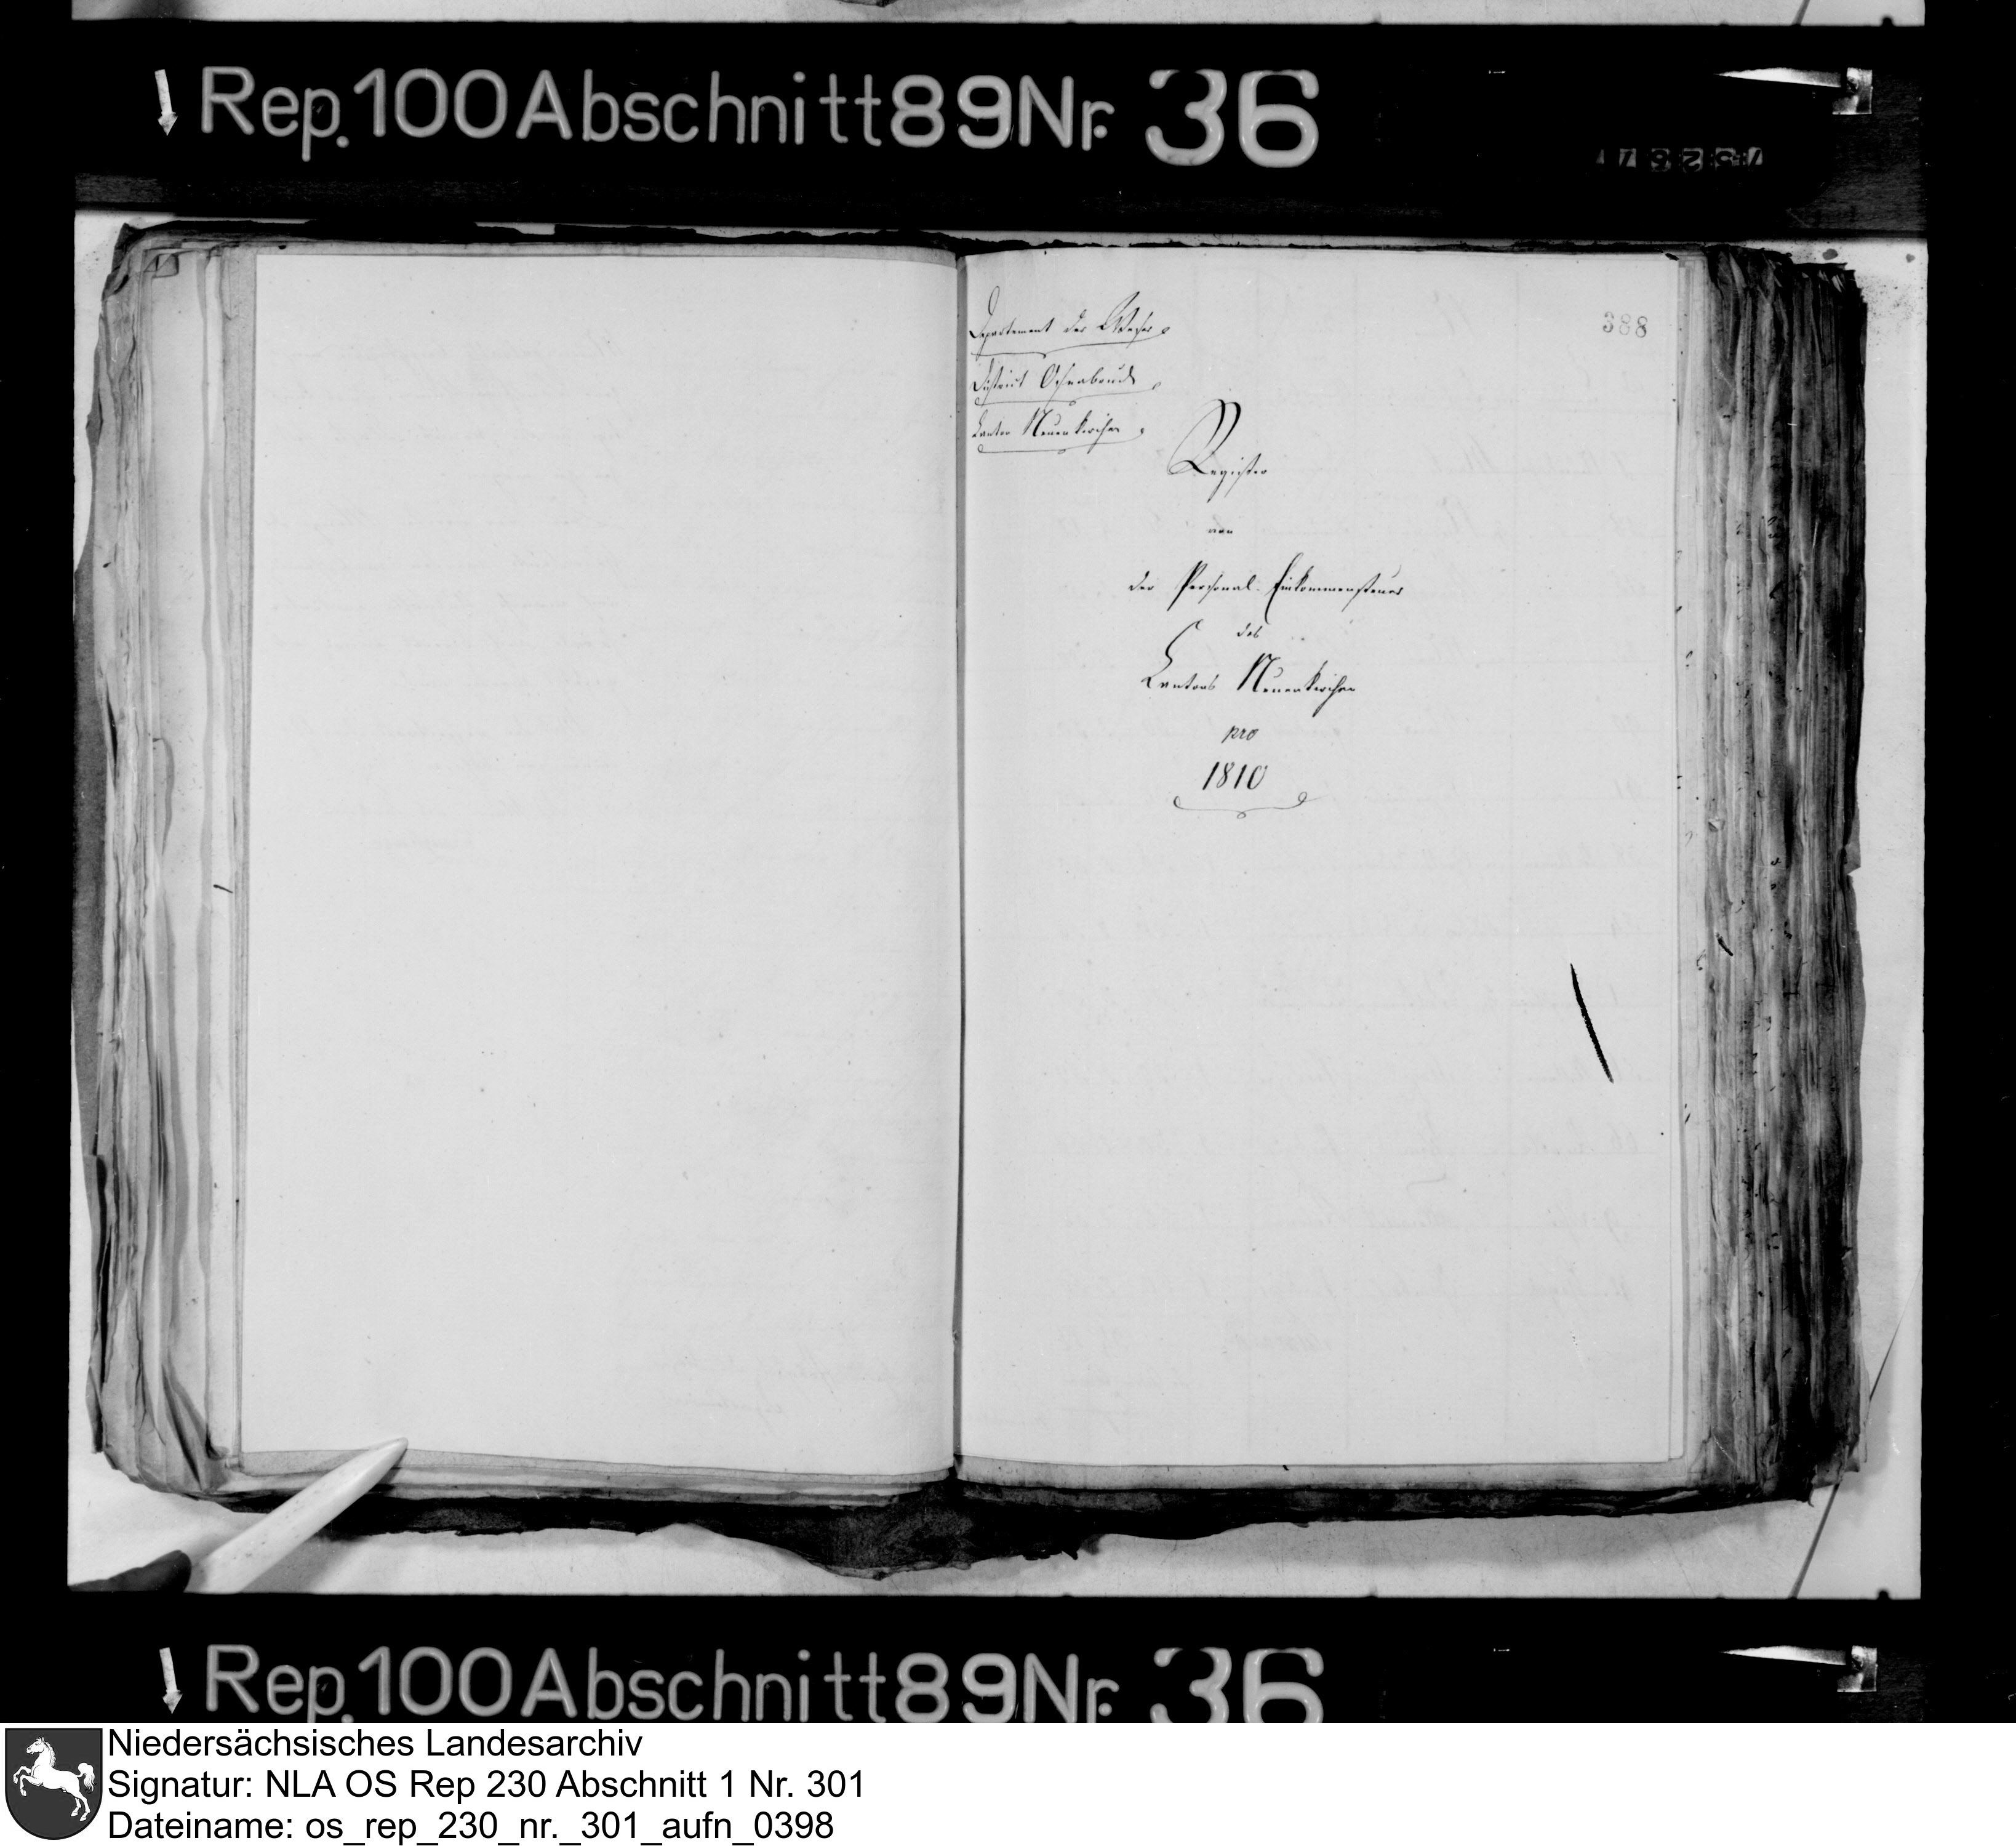 Rep. 100 Abschnitt 89 Nr. 36
388
Departement der Weser
District Osnabruck
Canton Neuenkirchen
Register
von
der Personal-Einkommensteuer
des
Cantons Neuenkirchen
pro
1810
Rep. 100 Abschnitt 89 Nr. 36
Niedersächsisches Landesarchiv
Signatur: NLA OS Rep 230 Abschnitt 1 Nr. 301
Dateiname: os_rep_230_nr._301_aufn_0398